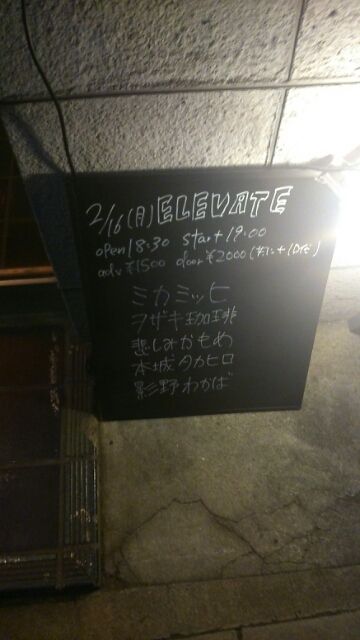 2/16(月) ELEVATE
open 18:30 start 19:00
adv ¥1500 door ¥2000 (共に+1Dr)
ミカミッヒ
ヲザキ珈琲
悲しみかもめ
本城タカヒロ
影野わかば